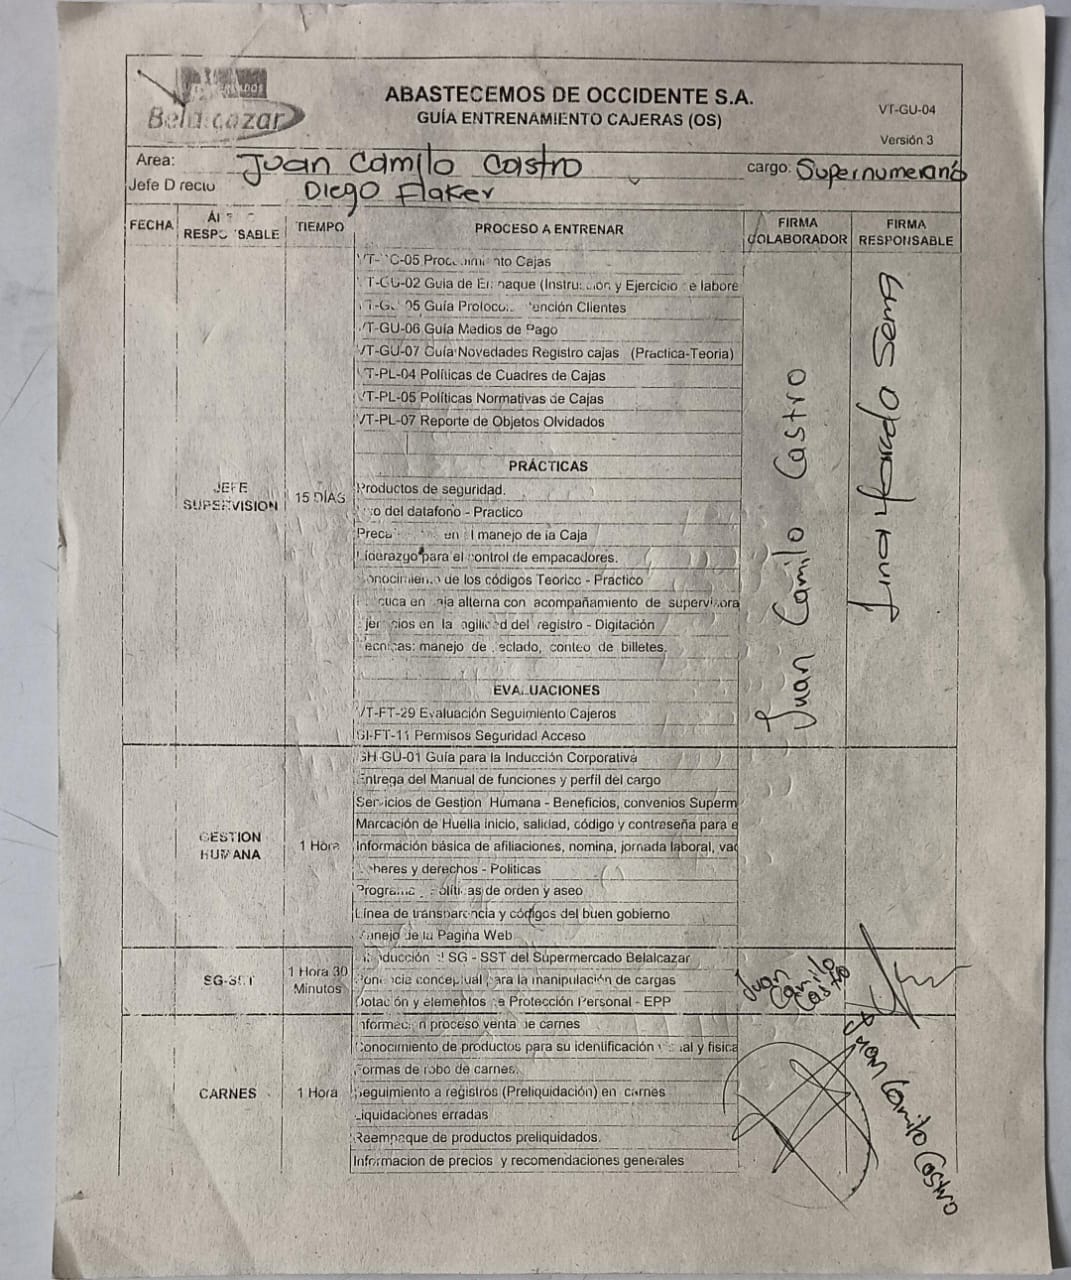 Belalcazar
ABASTECEMOS DE OCCIDENTE S.A.
GUÍA ENTRENAMIENTO CAJERAS (OS)
VT-GU-04
Versión 3
Area: Juan Camilo Castro
cargo: Supernumerario
Jefe Directo Diego Flaker
FECHA
RESPONSABLE
TIEMPO
PROCESO A ENTRENAR
FIRMA COLABORADOR
FIRMA RESPONSABLE
JEFE SUPERVISION
15 DÍAS
-05 Procedimiento Cajas
VT-GU-02 Guia de Empaque (Instrucción y Ejercicio de labore
05 Guía Protocolo Atención Clientes
VT-GU-06 Guía Medios de Pago
VT-GU-07 Guía Novedades Registro cajas (Practica-Teoria)
VT-PL-04 Políticas de Cuadres de Cajas
VT-PL-05 Políticas Normativas de Cajas
VT-PL-07 Reporte de Objetos Olvidados
PRÁCTICAS
Productos de seguridad.
Uso del datafono - Practico
en el manejo de la Caja
Liderazgo para el control de empacadores.
Conocimiento de los códigos Teorico - Practico
Práctica en caja alterna con acompañamiento de supervisora
Ejercicios en la agilidad del registro - Digitación
Técnicas: manejo de teclado, conteo de billetes.
EVALUACIONES
VT-FT-29 Evaluación Seguimiento Cajeros
-FT-11 Permisos Seguridad Acceso
Juan Camilo Castro
GESTION HUMANA
1 Hora
GH-GU-01 Guía para la Inducción Corporativa
Entrega del Manual de funciones y perfil del cargo
Servicios de Gestion Humana - Beneficios, convenios Superm
Marcación de Huella inicio, salidad, código y contraseña para e
Información básica de afiliaciones, nomina, jornada laboral, vac
Deberes y derechos - Politicas
Políticas de orden y aseo
Línea de transparencia y códigos del buen gobierno
Manejo de la Pagina Web
SG-SST
1 Hora 30 Minutos
SG - SST del Supermercado Belalcazar
conceptual para la manipulación de cargas
Dotación y elementos de Protección Personal - EPP
Juan Camilo Castro
CARNES
1 Hora
Información proceso venta de carnes
Conocimiento de productos para su identificación visual y fisica
Formas de robo de carnes.
Seguimiento a registros (Preliquidación) en carnes
Liquidaciones erradas
Reempaque de productos preliquidados.
Informacion de precios y recomendaciones generales
Juan Camilo Castro